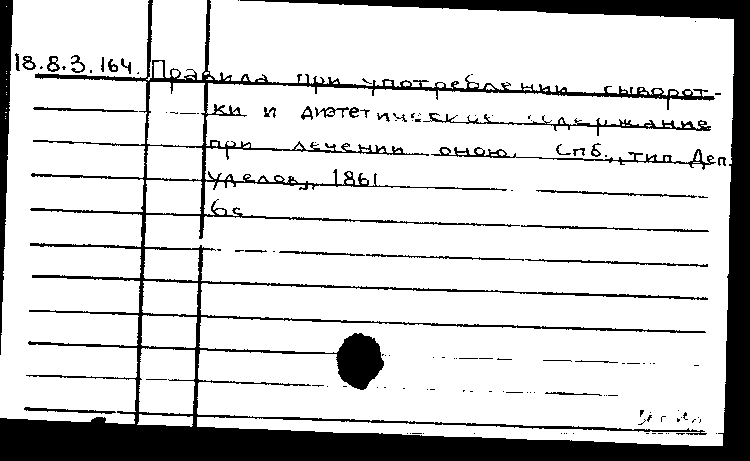 18.8.3.164. Правила при употреблении сыворот-
ки и диэтетическое содержание
при лечении оною. Спб., тип. Деп.
уделов, 1861
6с